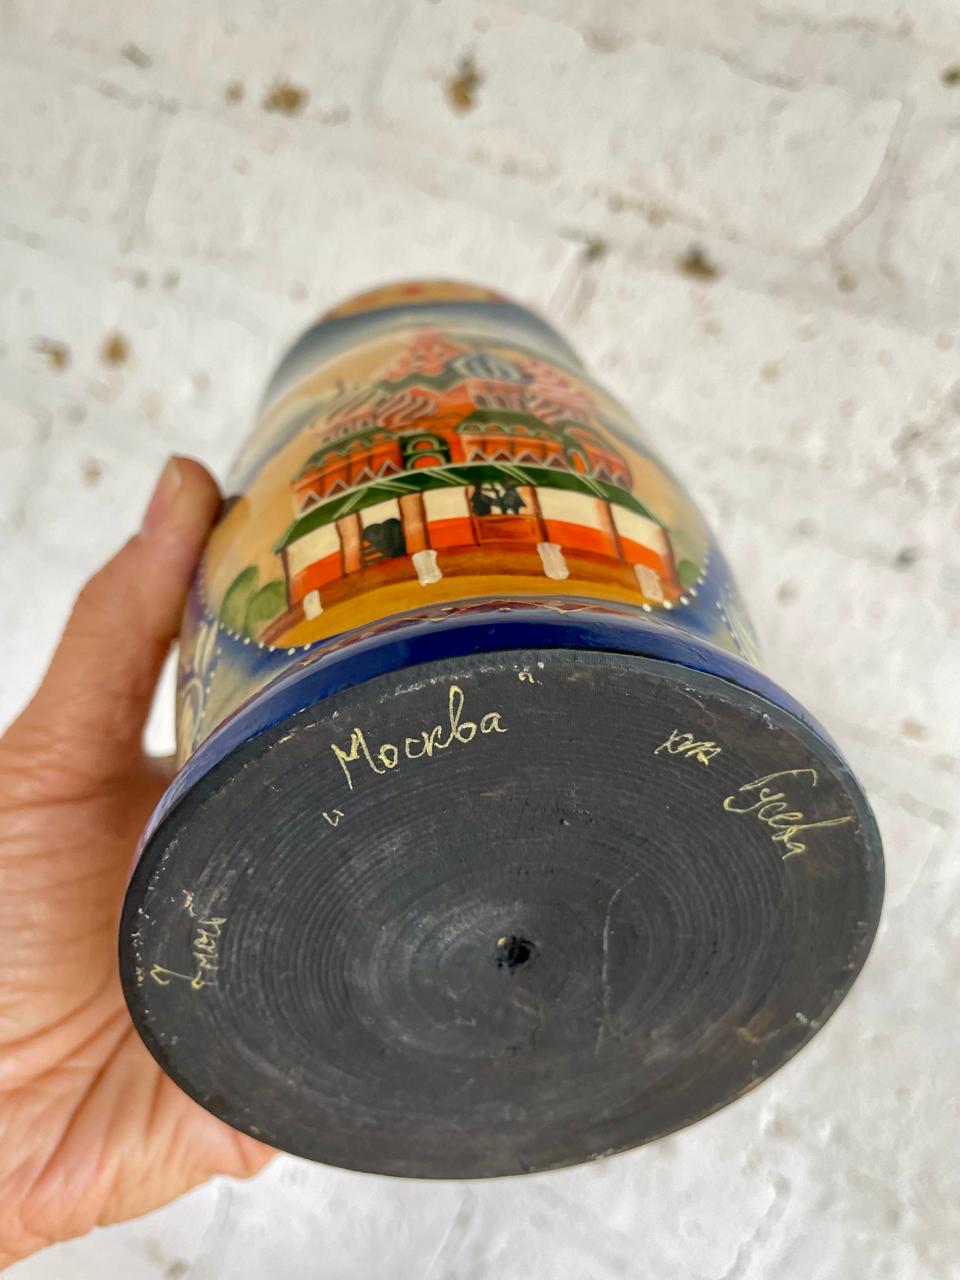 "Москва"
худ
Гусева